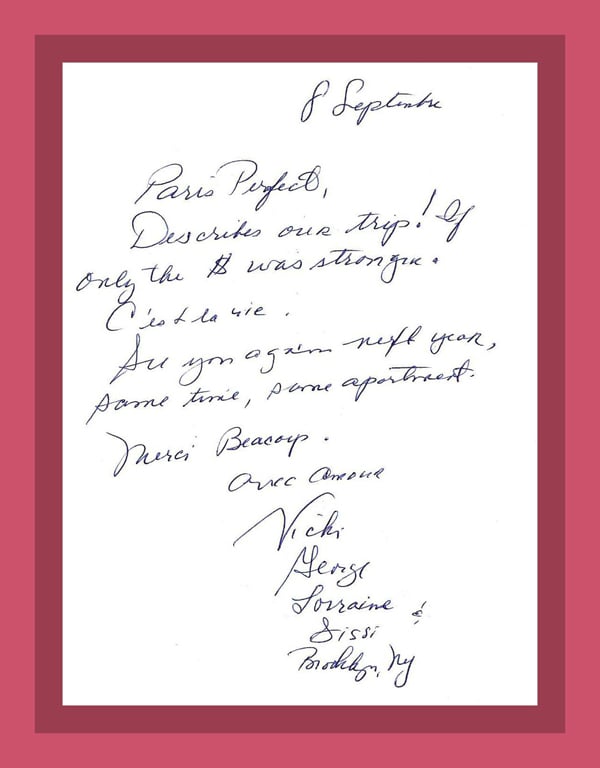 8 Septembre
Paris Perfect,
Describes our trip! If
only the $ was stronger.
C'est la vie.
See you again next year,
same time, same apartment.
Merci Beacoup.
avec amour
Vicki
George
Lorraine &
Sissi
Brooklyn, Ny